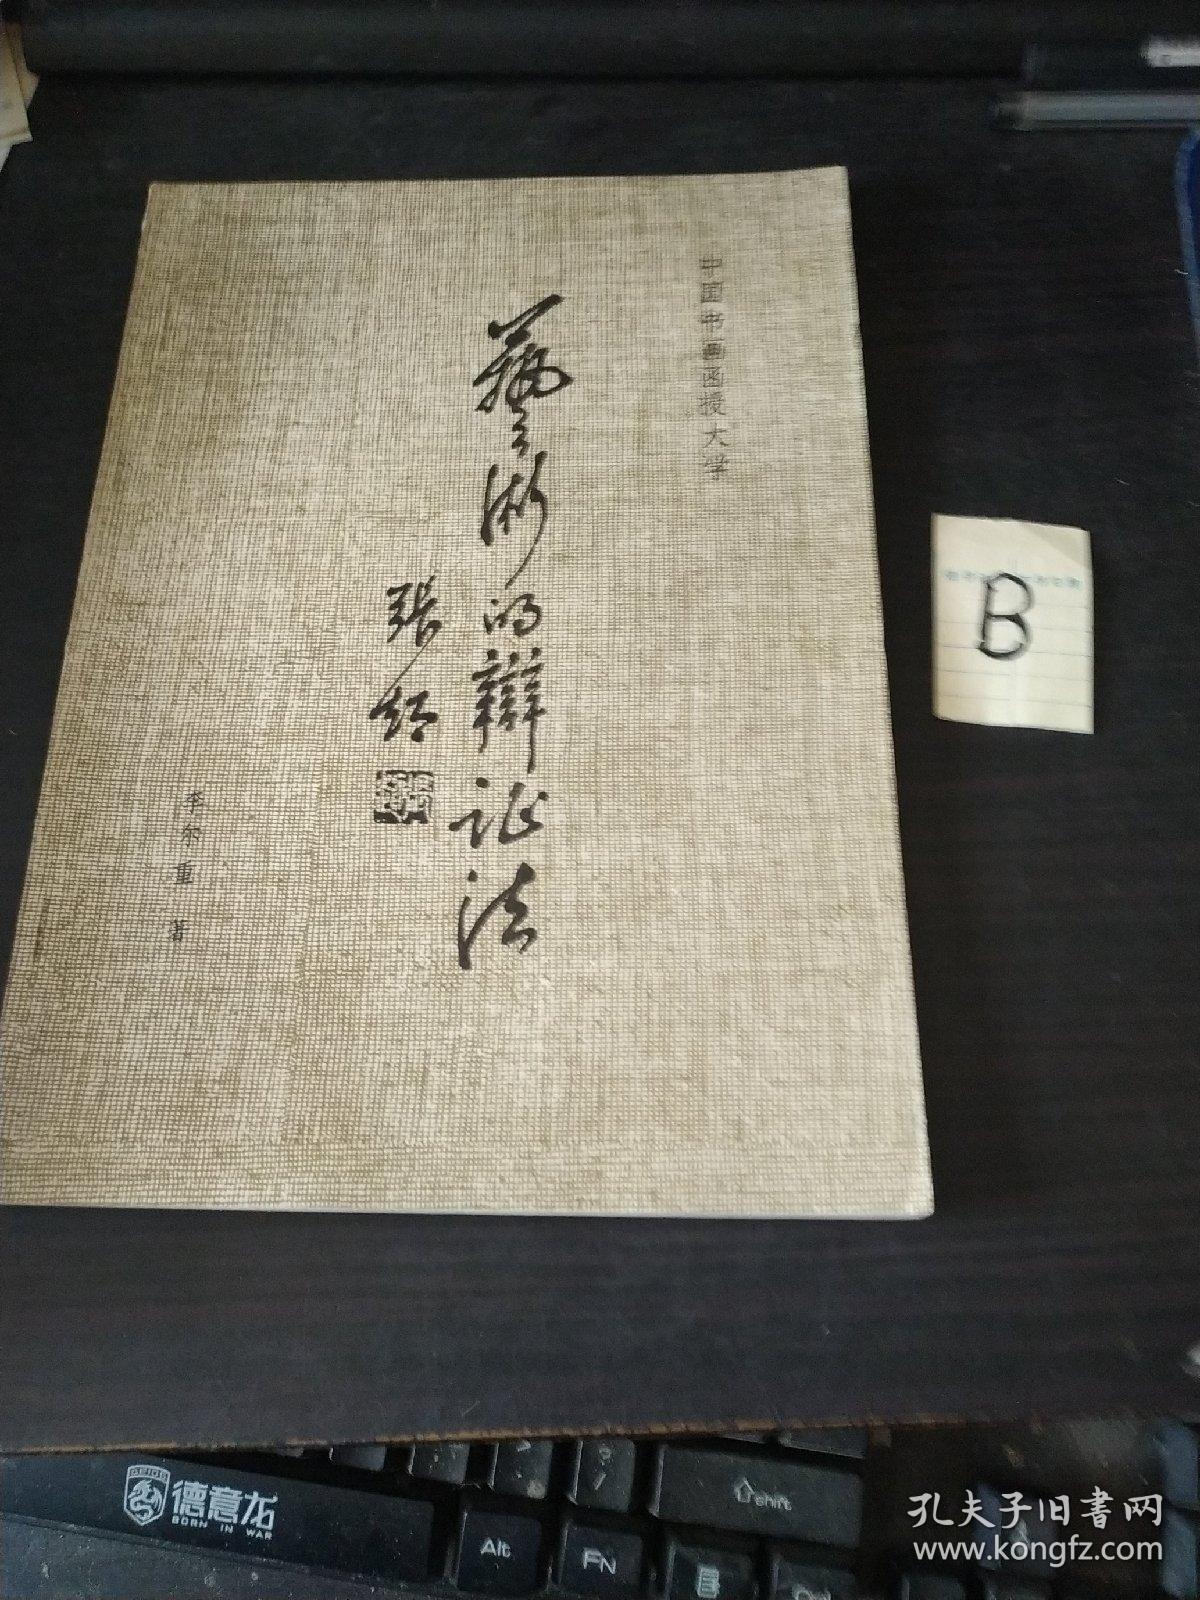 中国书画函授大学
藝术的辩证法
張
李尔重 著
B
德意龙
BORN IN WAR
Alt
FN
shift
孔夫子旧书网
www.kongfz.com